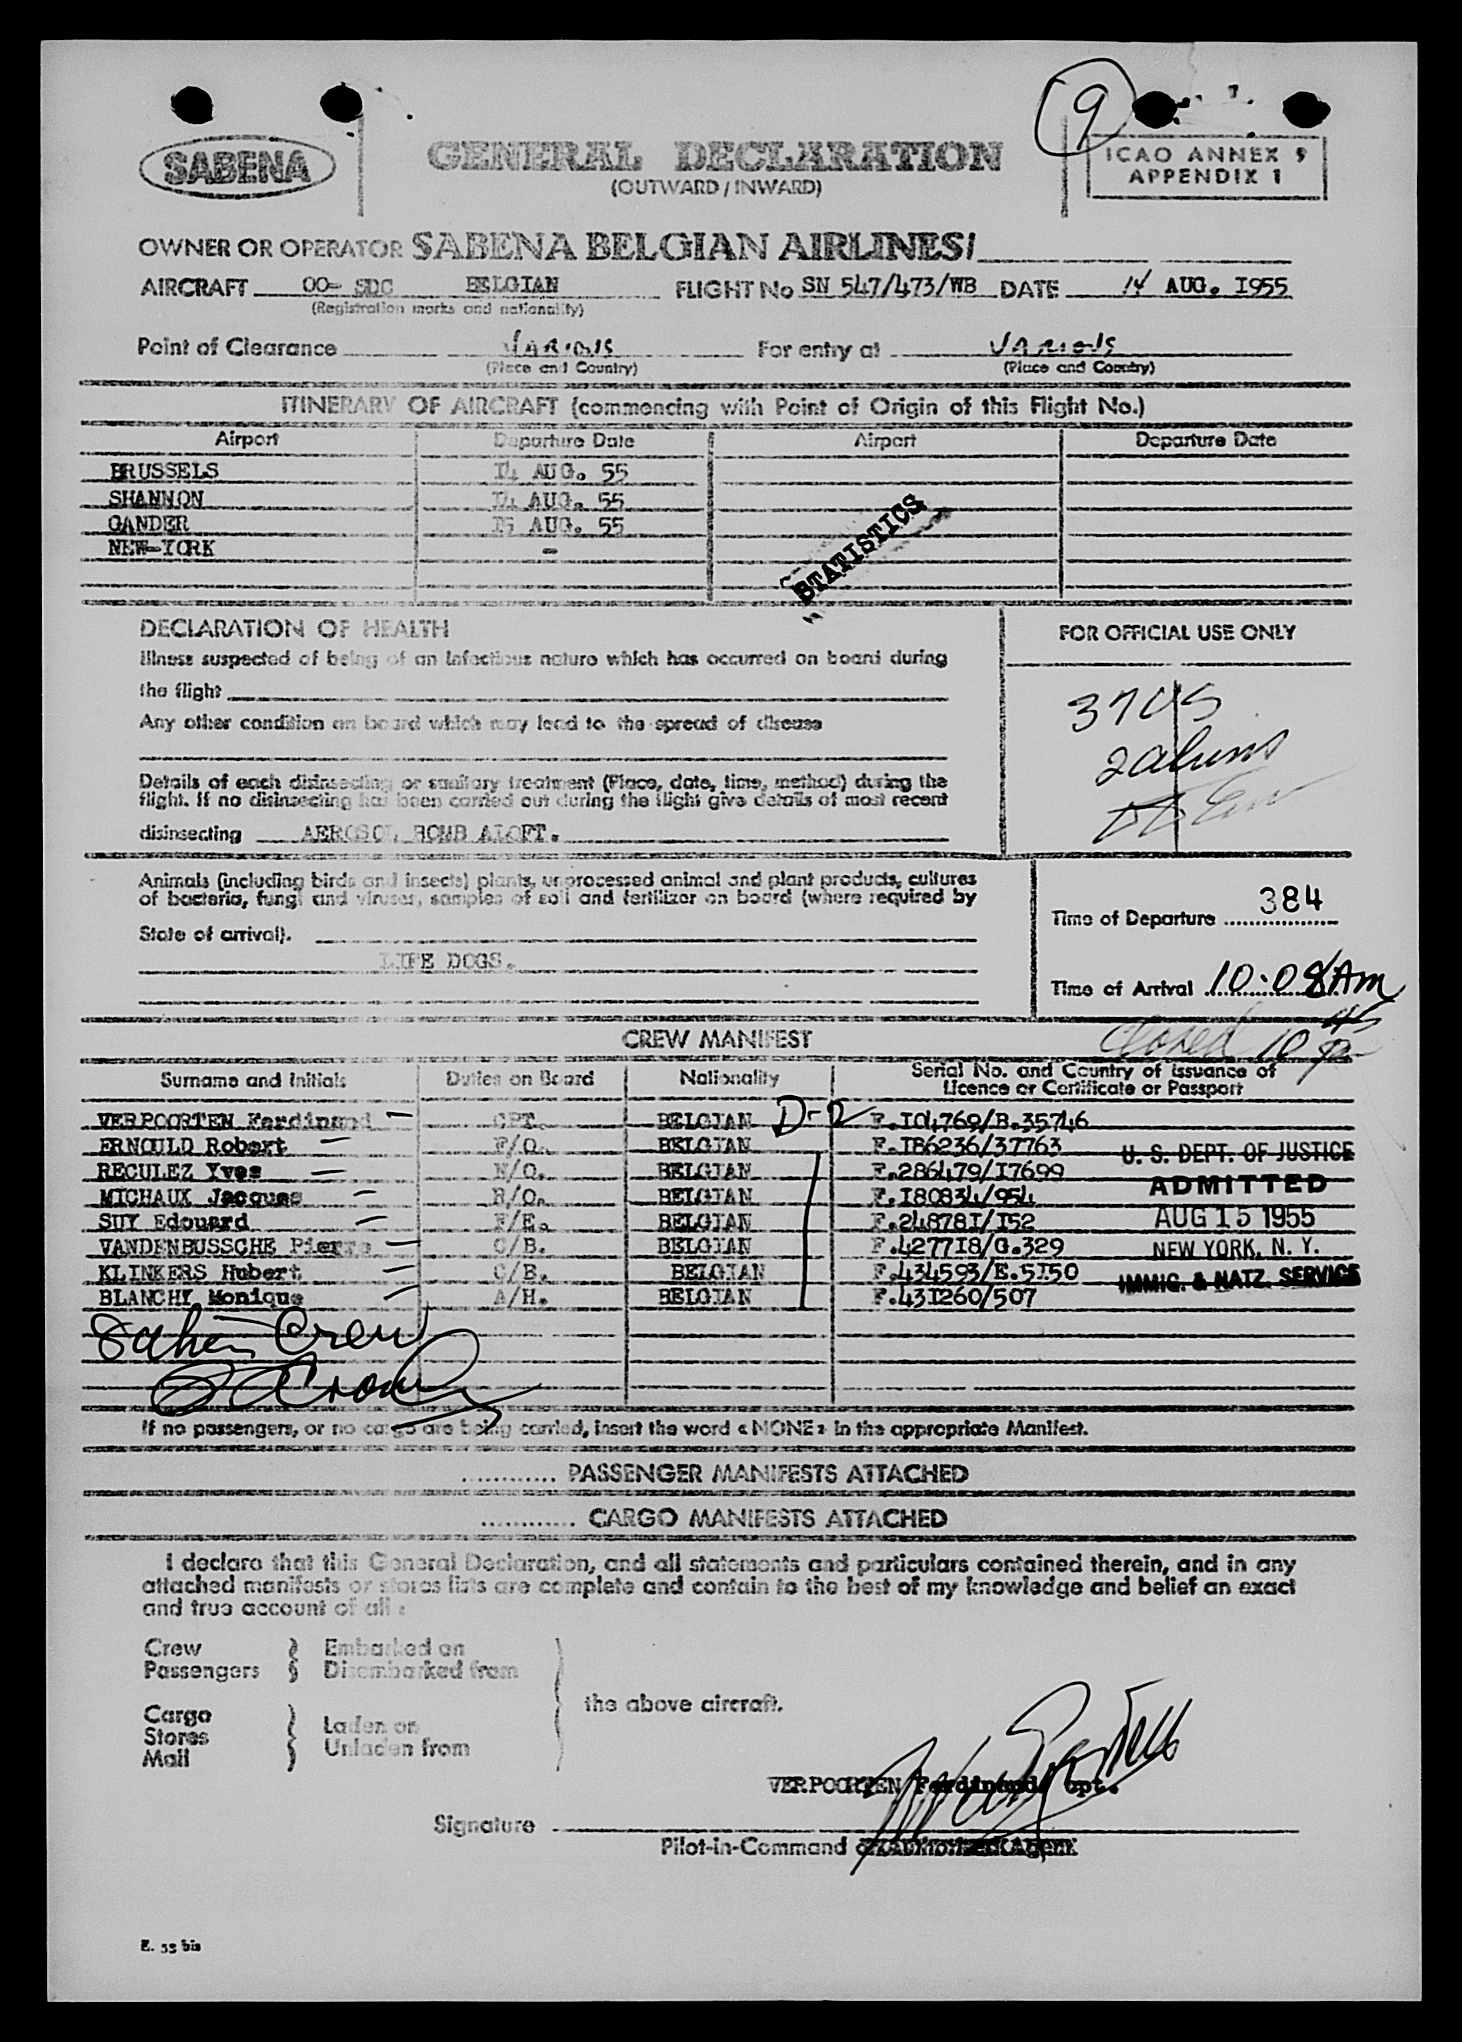 9
SABENA
GENERAL DECLARATION
(OUTWARD / INWARD)
ICAO ANNEX 9
APPENDIX 1
OWNER OR OPERATOR SABENA BELGIAN AIRLINES/
AIRCRAFT OO- SDC BELGIAN FLIGHT No SN 547/473/WB DATE 14 AUG. I955
(Registration marks and nationality)
Point of Clearance VARIOUS For entry at VARIOUS
(Place and Country) (Place and Country)
ITINERARY OF AIRCRAFT (commencing with Point of Origin of this Flight No.)
Airport Departure Date Airport Departure Date
BRUSSELS I4 AUG. 55
SHANNON I4 AUG. 55
GANDER I5 AUG. 55
NEW-YORK -
STATISTICS
DECLARATION OF HEALTH
Illness suspected of being of an infectious nature which has occurred on board during
the flight
Any other condition on board which may lead to the spread of disease
Details of each disinsecting or sanitary treatment (Place, date, time, method) during the
flight. If no disinsecting has been carried out during the flight give details of most recent
disinsecting AEROSOL BOMB ALOFT.
FOR OFFICIAL USE ONLY
37 US
2 aliens
Animals (including birds and insects) plants, unprocessed animal and plant products, cultures
of bacteria, fungi and viruses, samples of soil and fertilizer on board (where required by
State of arrival).
LIFE DOGS.
Time of Departure 384
Time of Arrival 10:08 AM
closed 10 45
CREW MANIFEST
Surname and Initials Duties on Board Nationality Serial No. and Country of issuance of
Licence or Certificate or Passport
VERPOORTEN Ferdinand - CPT. BELGIAN D-2 F.I04769/B.35746
ERNOULD Robert - F/O. BELGIAN F.I86236/37763
RECULEZ Yves - N/O. BELGIAN F.286479/I7699
MICHAUX Jacques - R/O. BELGIAN F.I80834/954
SUY Edouard - F/E. BELGIAN F.24878I/I52
VANDENBUSSCHE Pierre - C/B. BELGIAN F.4277I8/G.329
KLINKERS Hubert - C/B. BELGIAN F.434593/E.5I50
BLANCHY Monique - A/H. BELGIAN F.43I260/507
U. S. DEPT. OF JUSTICE
ADMITTED
AUG 15 1955
NEW YORK, N. Y.
IMMIG. & NATZ. SERVICE
Crew
If no passengers, or no cargo are being carried, insert the word « NONE » in the appropriate Manifest.
............ PASSENGER MANIFESTS ATTACHED
............ CARGO MANIFESTS ATTACHED
I declare that this General Declaration, and all statements and particulars contained therein, and in any
attached manifests or stores lists are complete and contain to the best of my knowledge and belief an exact
and true account of all :
Crew
Passengers
Embarked on
Disembarked from
Cargo
Stores
Mail
Laden on
Unladen from
the above aircraft.
VERPOORTEN Ferdinand, cpt.
Signature
Pilot-in-Command or Authorized Agent
E. 53 bis